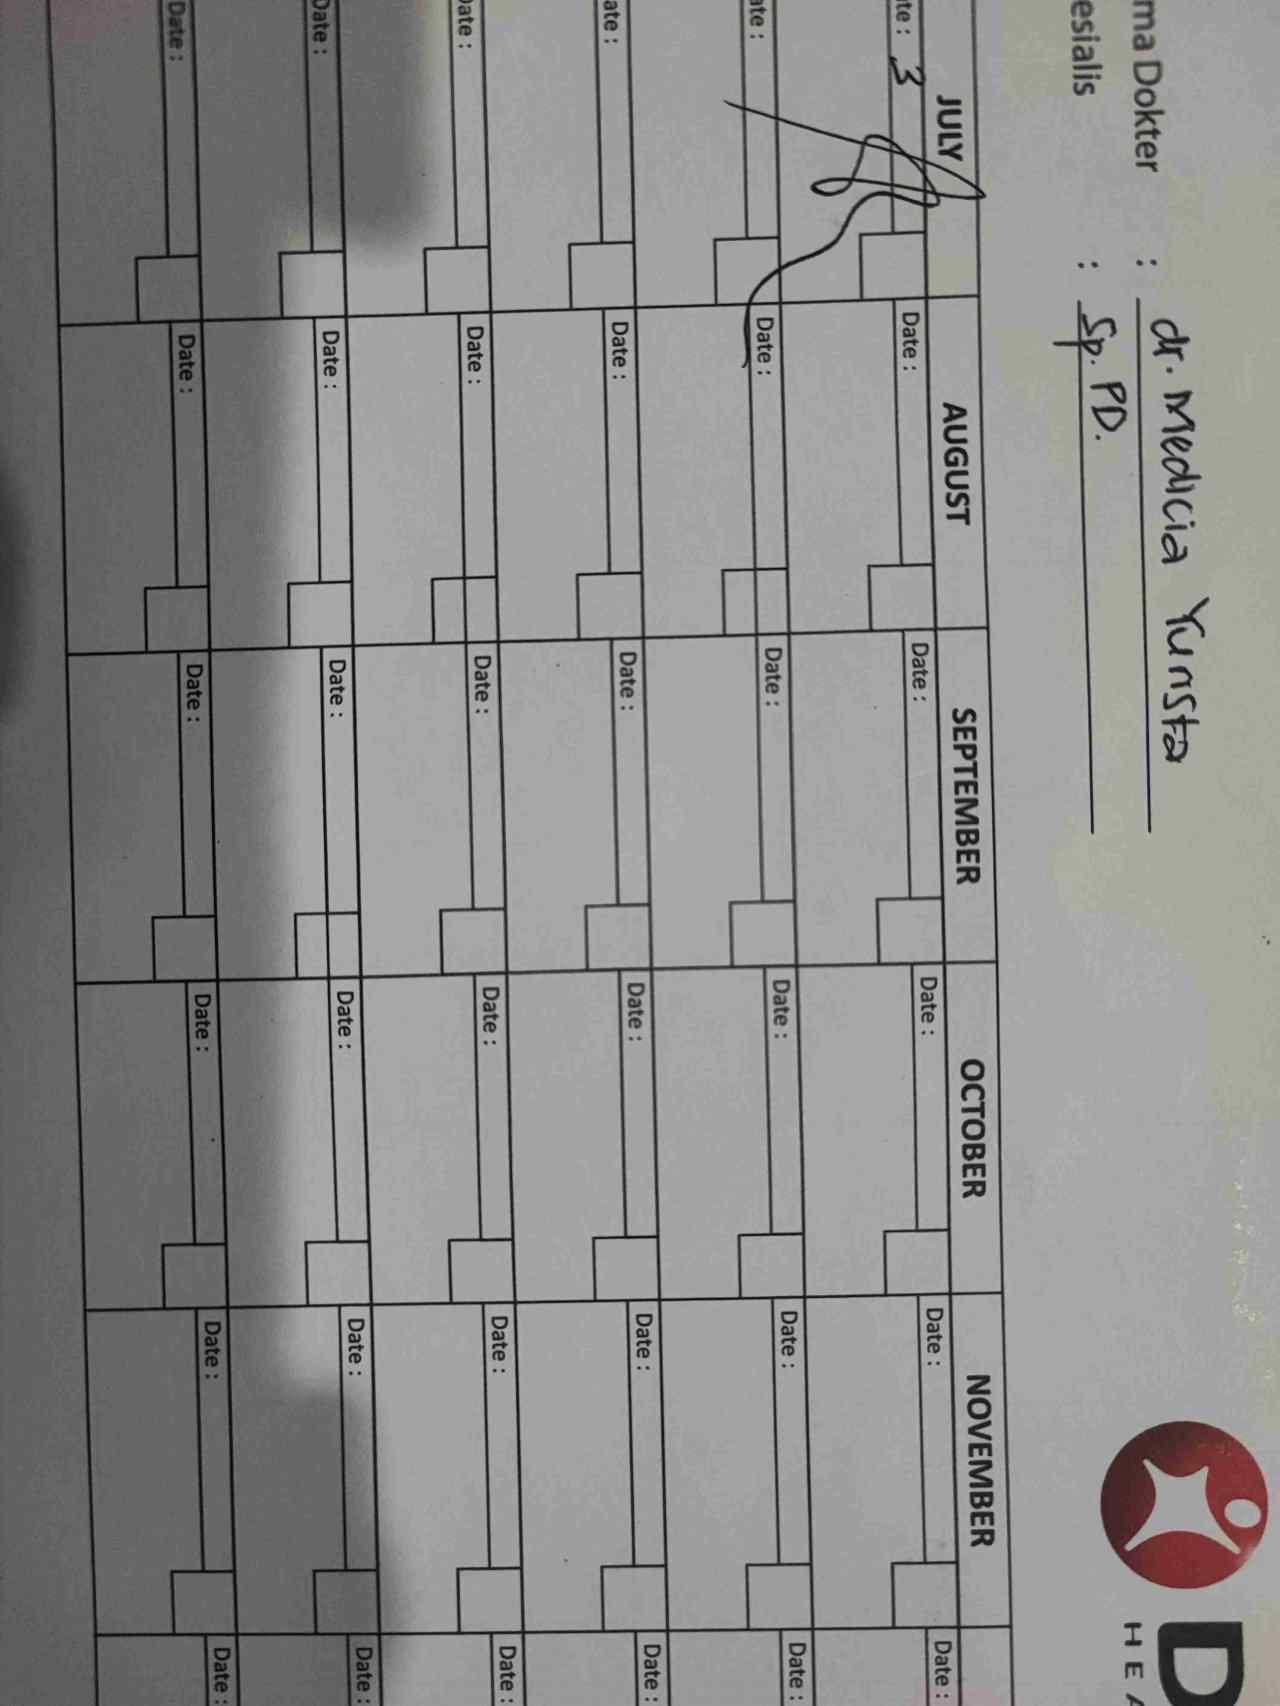 ma Dokter : dr. Medicia Yunsta
esialis : Sp. PD.
D
HEA
JULY AUGUST SEPTEMBER OCTOBER NOVEMBER
te : 3 Date : Date : Date : Date : Date :
ate : Date : Date : Date : Date : Date :
ate : Date : Date : Date : Date : Date :
Date : Date : Date : Date : Date : Date :
Date : Date : Date : Date : Date : Date :
Date : Date : Date : Date : Date : Date :